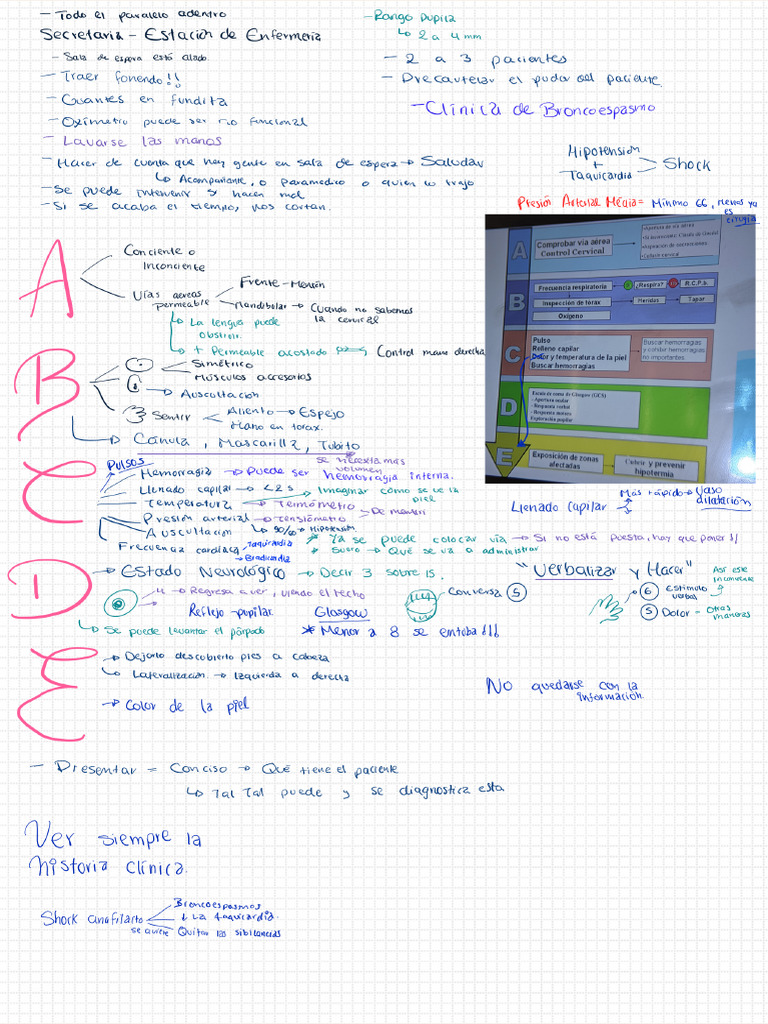 - Todo el paralelo adentro
Secretaria - Estación de Enfermería
- Sala de espera está alado.
- Traer fonendo!!
- Guantes en fundita
- Oxímetro puede ser no funcional
- Lavarse las manos
- Hacer de cuenta que hay gente en sala de espera → Saludar
↳ Acompañante, o paramedico o quien lo trajo
- Se puede intervenir si hacen mal
- Si se acaba el tiempo, nos cortan.
- Rango Pupila
↳ 2 a 4 mm
- 2 a 3 pacientes
- Precautelar el pudor del paciente.
- Clínica de Broncoespasmo
Hipotensión
+
Taquicardia
Shock
Presión Arterial Média = Mínimo 66, menos ya
es
cirugía
A
Conciente o
Inconciente
Vías aereas
permeable
Frente - Mentón
Mandibular → Cuando no sabemos
la cervical
↳ La lengua puede
obstruir.
→ + Permeable acostado
Control mano derecha
B
Simétrico
Músculos accesorios
→ Auscultación
Sentir
Aliento → Espejo
Mano en torax.
→ Cánula, Mascarilla, Tubito
C
Pulsos
se necesita más
volumen
Hemorragia → Puede ser hemorragia interna.
Llenado capilar → <2s
→ Imaginar como se ve la
piel
Temperatura → Termómetro
Presión arterial → Tensiómetro
De mentiri
Auscultación
↳ 90/60 → Hipotensión
Frecuenza cardíaca
Taquicardia
Bradicardia
* Ya se puede colocar vía → Si no está puesta, hay que poner
* Suero → Qué se va a administrar
Llenado Capilar
Más rápido → Vaso
dilatación
D
→ Estado Neurológico → Decir 3 sobre 15.
→ Regresa a ver, viendo el techo
Reflejo pupilar
↳ Se puede levantar el párpado
Glasgow
* Menor a 8 se entuba !!!
Conversa 5
"Verbalizar y Hacer"
6 Estímulo
verbal
5 Dolor - Otras
maneras
Así este
inconciente
E
→ Dejarlo descubierto pies a cabeza
↳ Lateralización → Izquierda a derecha
→ Color de la piel
No quedarse con la
información.
- Presentar = Conciso → Qué tiene el paciente
↳ Tal Tal puede y se diagnostica esta
Ver siempre la
historia clínica.
Shock anafilacto
Broncoespasmos
↓ La taquicardia.
se quiere Quitar las sibilancias
A
Comprobar vía aérea
Control Cervical
B
Frecuencia respiratoria
¿Respira?
R.C.P.b.
Inspección de torax
Heridas
Tapar
Oxígeno
C
Pulso
Relleno capilar
Color y temperatura de la piel
Buscar hemorragias
Buscar hemorragias
y cohibir hemorragias
no importantes
D
Escala de coma de Glasgow (GCS)
- Apertura ocular
- Respuesta verbal
- Respuesta motora
Exploración pupilar
E
Exposición de zonas
afectadas
Cubrir y prevenir
hipotermia